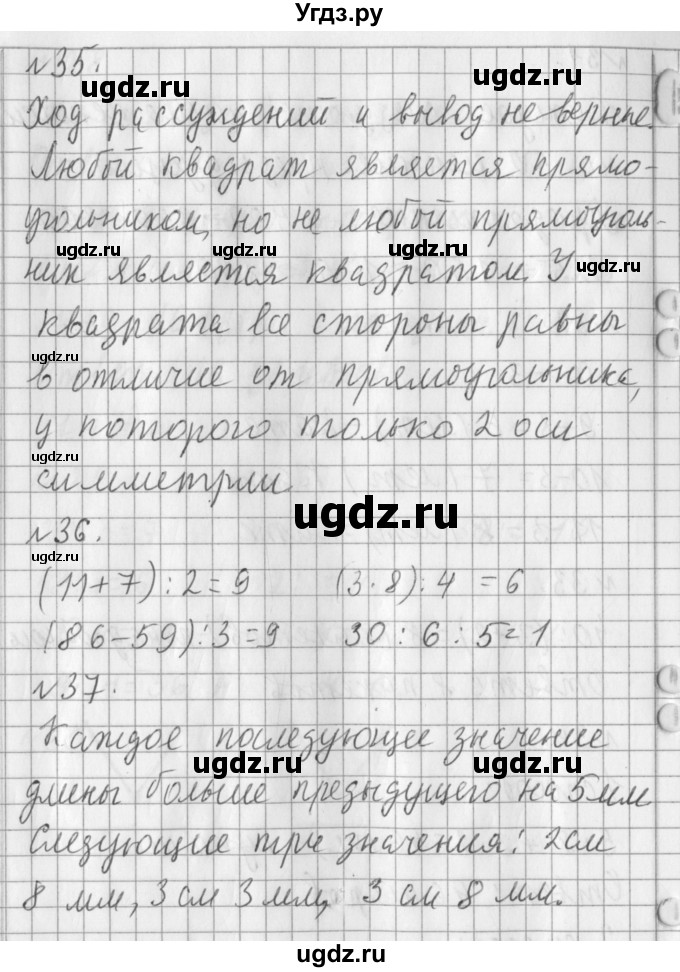 Угдз.ру
№35.
ugdz.ru ugdz.ru
Ход рассуждений и вывод не верные.
Любой квадрат является прямо-
угольником, но не любой прямоуголь-
ugdz.ru ugdz.ru ugdz.ru
ник является квадратом. У
квадрата все стороны равны
ugdz.ru
в отличие от прямоугольника,
у которого только 2 оси
ugdz.ru
симметрии
ugdz.ru
№36.
ugdz.ru
(11+7):2=9 (3·8):4=6
(86-59):3=9 30:6:5=1
№37.
Каждое последующее значение
ugdz.ru ugdz.ru ugdz.ru
длины больше предыдущего на 5 мм
Следующие три значения: 2 см
8 мм, 3 см 3 мм, 3 см 8 мм.
ugdz.ru